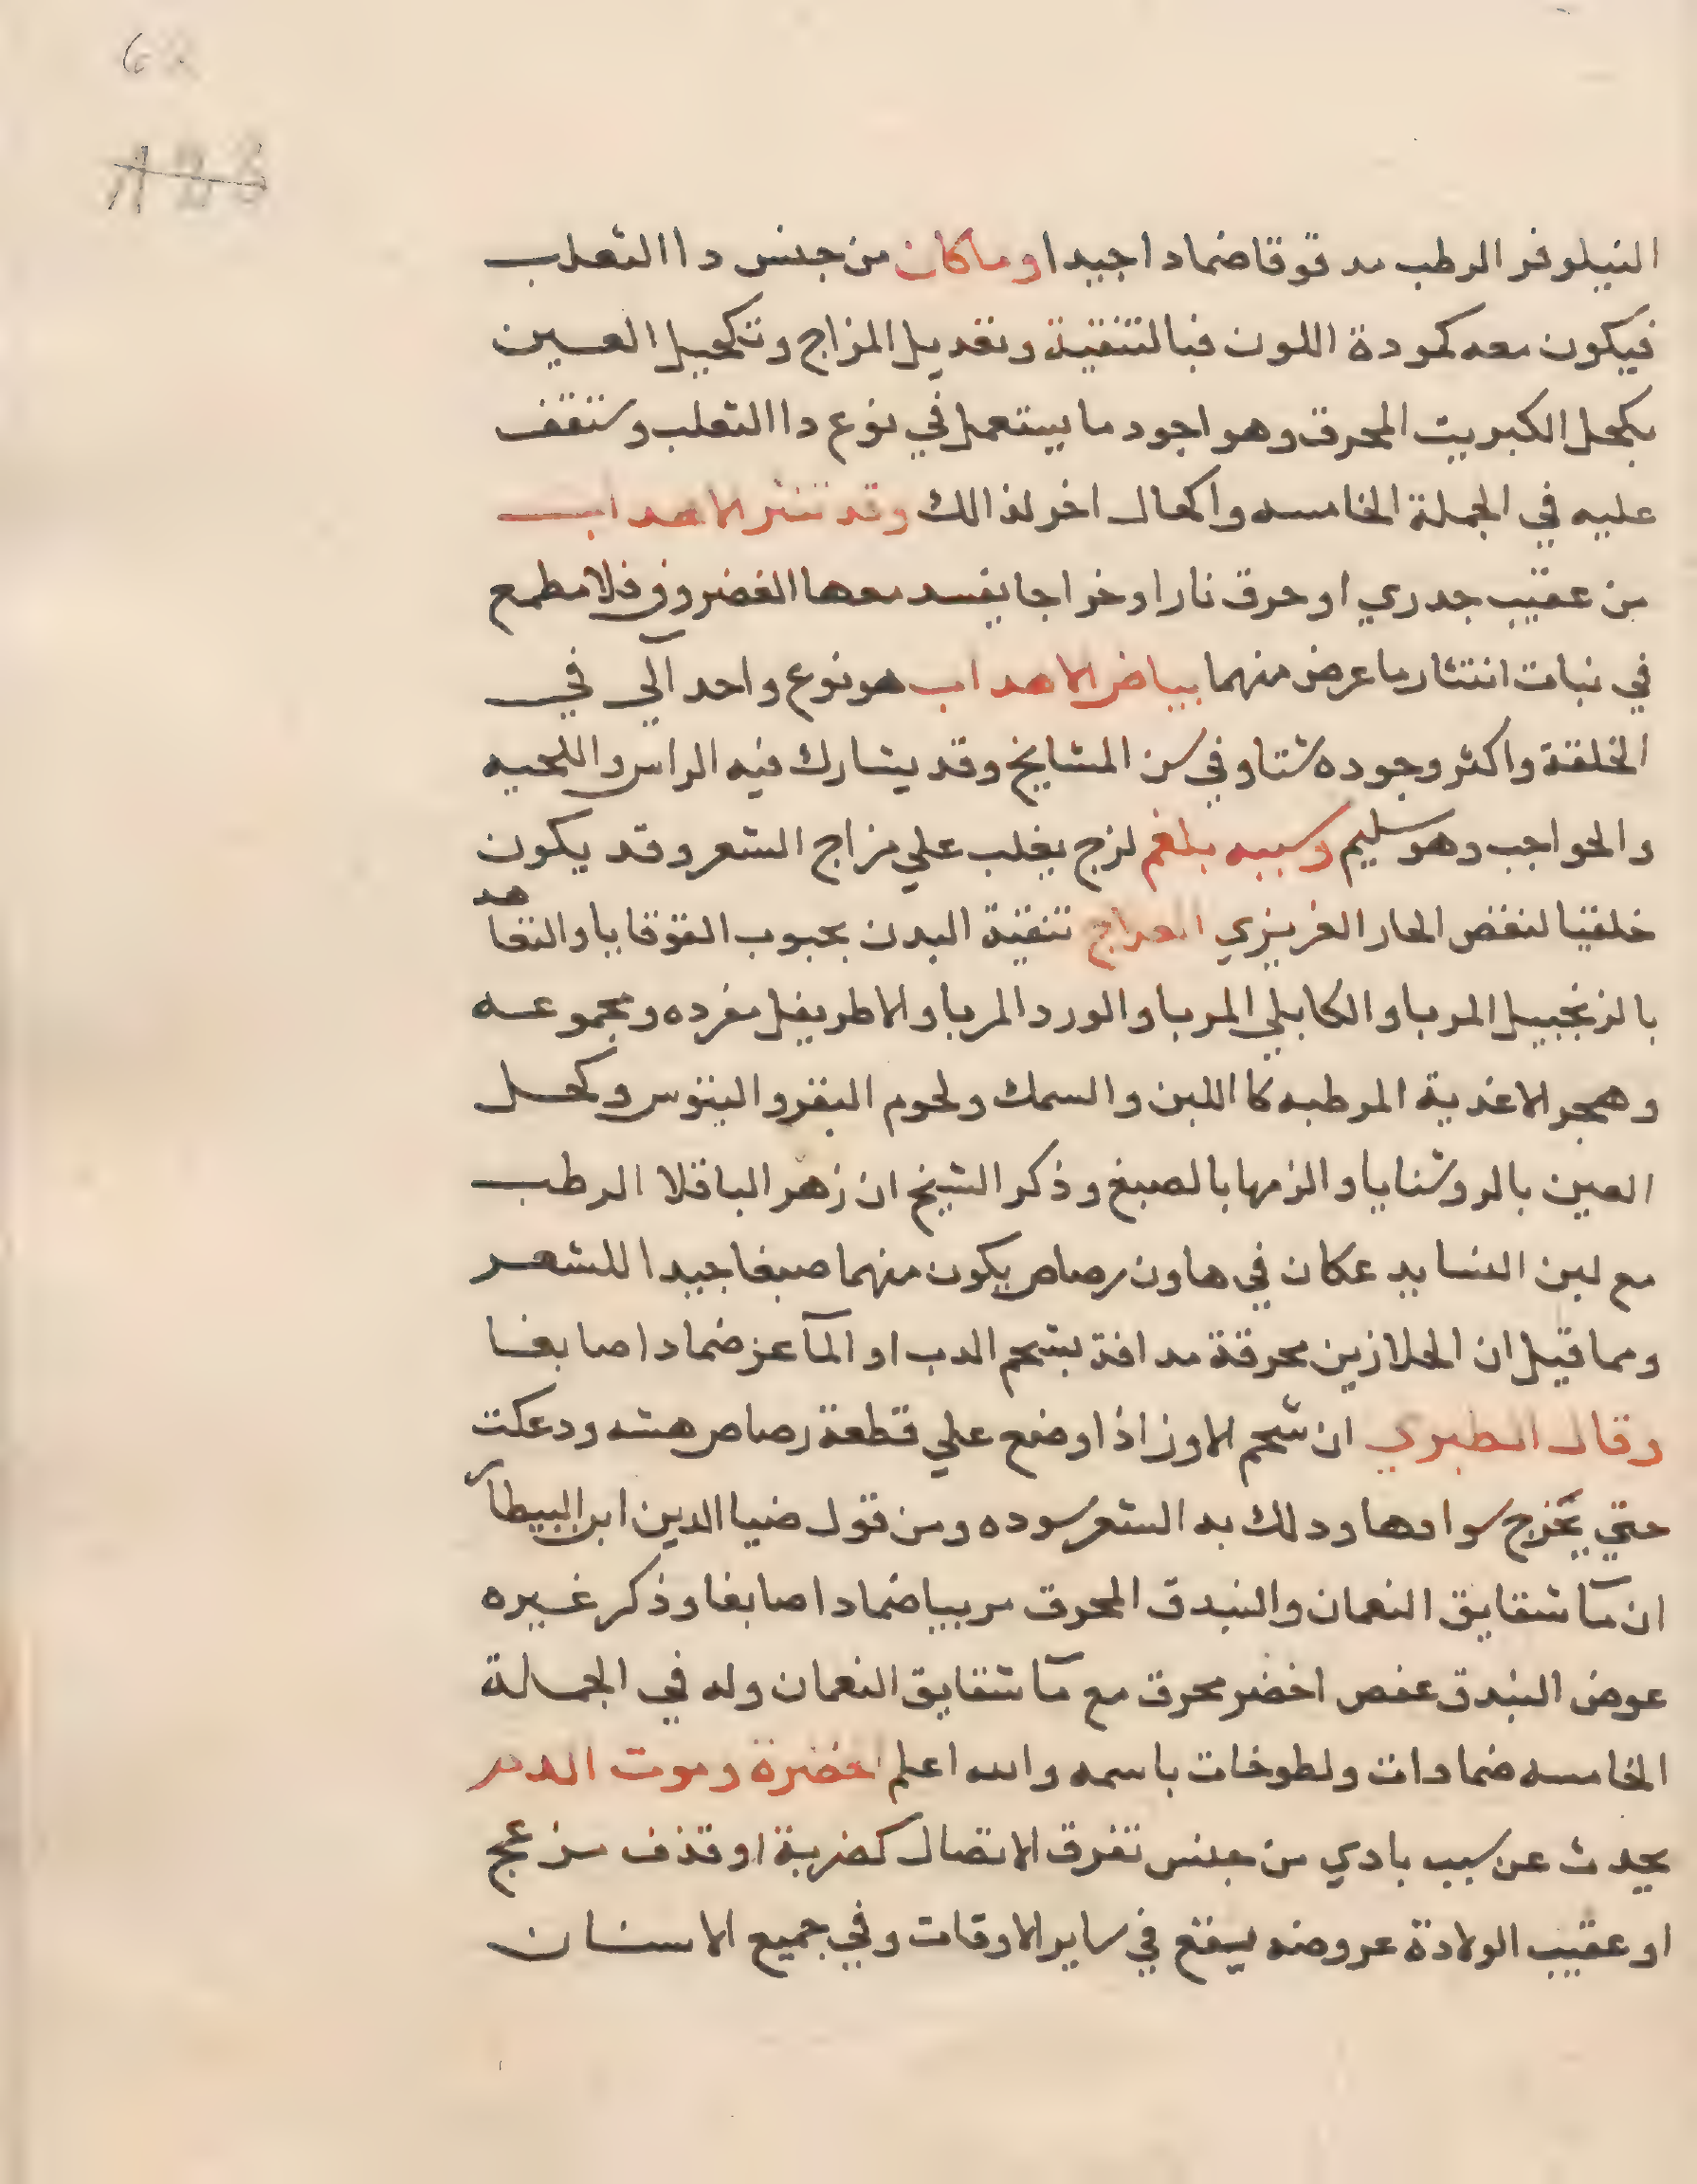 62
123
النيلوفر الرطب مدقوقا ضمادا جيدا وما كان من جنس دا الثعلب
فيكون معه كمودة اللون فبالتنقية وتعديل المزاج وتكحيل العين
بكحل الكبريت المحرق وهو اجود ما يستعمل في نوع دا الثعلب وستقف
عليه في الجملة الخامسه واكحال اخر لذالك وقد تنثر الاهداب
من عقيب جدري او حرق نار او خراجا يفسد معها الغضروف فلا مطمع
في نبات انتثار ما عرض منهما بياض الاهداب هو نوع واحد آلي في
الخلقة واكثر وجوده شتا وفي سن المشايخ وقد يشارك فيه الراس واللحيه
والحواجب وهو سليم وسببه بلغم لزج يغلب علي مزاج الشعر وقد يكون
خلقيا لنقص الحار الغريزي العلاج تنقية البدن بحبوب القوقايا والتعاهد
بالزنجبيل المربا والكابلي المربا والورد المربا والاطريفل مفرده ومجموعه
وهجر الاغذية المرطبه كا اللبن والسمك ولحوم البقر والتيوس وكحل
العين بالروشنايا والزمها بالصبغ وذكر الشيخ ان زهر الباقلا الرطب
مع لبن النسا يدعكان في هاون رصاص يكون منهما صبغا جيدا للشعر
ومما قيل ان الحلازين محرقة مدافة بشحم الدب او الماعز ضمادا صابغا
وقال الطبري ان شحم الاوز اذا وضع علي قطعة رصاص هشه ودعكت
حتي يخرج سوادها ودلك به الشعر سوده ومن قول ضيا الدين ابن البيطار
ان مآ شقايق النعمان والبندق المحرق مربيا ضمادا صابغا وذكر غيره
عوض البندق عفص اخضر محرق مع مآ شقايق النعمان وله في الجملة
الخامسه ضمادات ولطوخات باسمه والله اعلم الخضرة وموت الدم
يحدث عن سبب بادي من جنس تفرق الاتصال كضربة او قذف مزعج
او عقيب الولادة عروضه يقع في ساير الاوقات وفي جميع الاسنان